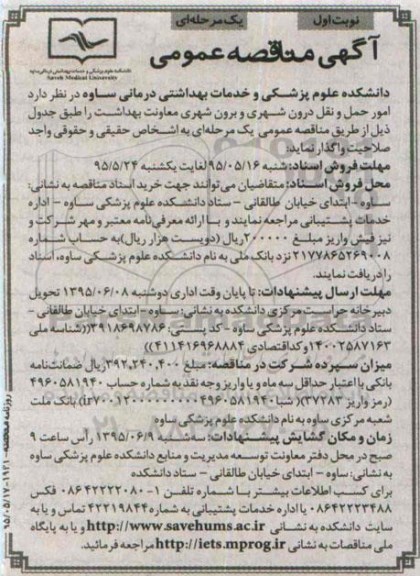 نوبت اول
یک مرحله‌ای
آگهی مناقصه عمومی
دانشکده علوم پزشکی و خدمات بهداشتی درمانی ساوه
Saveh Medical University
دانشکده علوم پزشکی و خدمات بهداشتی درمانی ساوه در نظر دارد
امور حمل و نقل درون شهری و برون شهری معاونت بهداشت را طبق جدول
ذیل از طریق مناقصه عمومی یک مرحله‌ای به اشخاص حقیقی و حقوقی واجد
صلاحیت واگذار نماید:
مهلت فروش اسناد: شنبه ۹۵/۰۵/۱۶ لغایت یکشنبه ۹۵/۵/۲۴
محل فروش اسناد: متقاضیان می‌توانند جهت خرید اسناد مناقصه به نشانی:
ساوه - ابتدای خیابان طالقانی - ستاد دانشکده علوم پزشکی ساوه - اداره
خدمات پشتیبانی مراجعه نمایند و با ارائه معرفی‌نامه معتبر و مهر شرکت و
نیز فیش واریز مبلغ ۲۰۰۰۰۰ ریال (دویست هزار ریال) به حساب شماره
۲۱۷۷۸۶۵۲۶۹۰۰۸ نزد بانک ملی به نام دانشکده علوم پزشکی ساوه، اسناد
را دریافت نمایند.
مهلت ارسال پیشنهادات: تا پایان وقت اداری دوشنبه ۱۳۹۵/۰۶/۰۸ تحویل
دبیرخانه حراست مرکزی دانشکده به نشانی: ساوه - ابتدای خیابان طالقانی -
ستاد دانشکده علوم پزشکی ساوه - کد پستی ۳۹۱۸۶۹۸۷۸۶ (شناسه ملی
۱۴۰۰۲۵۸۷۱۶۳ و کد اقتصادی ۴۱۱۴۱۶۹۶۸۸۸۴))
میزان سپرده شرکت در مناقصه: مبلغ ۳۹۲,۲۴۰,۴۰۰ ریال ضمانت‌نامه
بانکی با اعتبار حداقل سه ماه و یا واریز وجه نقد به شماره حساب ۴۹۶۰۵۸۱۹۴۰
(رمز واریز ۳۷۲۸۳) (شبا ۰۴۹۶۰۵۸۱۹۴۰ ir۷۰۰۱۲۰۰۰۰۰۰۰۰) بانک ملت
شعبه مرکزی ساوه به نام دانشکده علوم پزشکی ساوه
زمان و مکان گشایش پیشنهادات: سه‌شنبه ۱۳۹۵/۰۶/۹ رأس ساعت ۹
صبح در محل دفتر معاونت توسعه مدیریت و منابع دانشکده علوم پزشکی ساوه
به نشانی: ساوه - ابتدای خیابان طالقانی - ستاد دانشکده
برای کسب اطلاعات بیشتر با شماره تلفن ۱- ۰۸۶۴۲۲۲۲۰۸۰ فکس
۰۸۶۴۲۲۲۳۴۸۸ یا اداره خدمات پشتیبانی به شماره ۴۲۲۱۹۸۴۴ تماس و یا به
سایت دانشکده به نشانی http://www.savehums.ac.ir و یا به پایگاه
ملی مناقصات به نشانی http://iets.mprog.ir مراجعه فرمائید.
۹۵/۰۵/۱۷